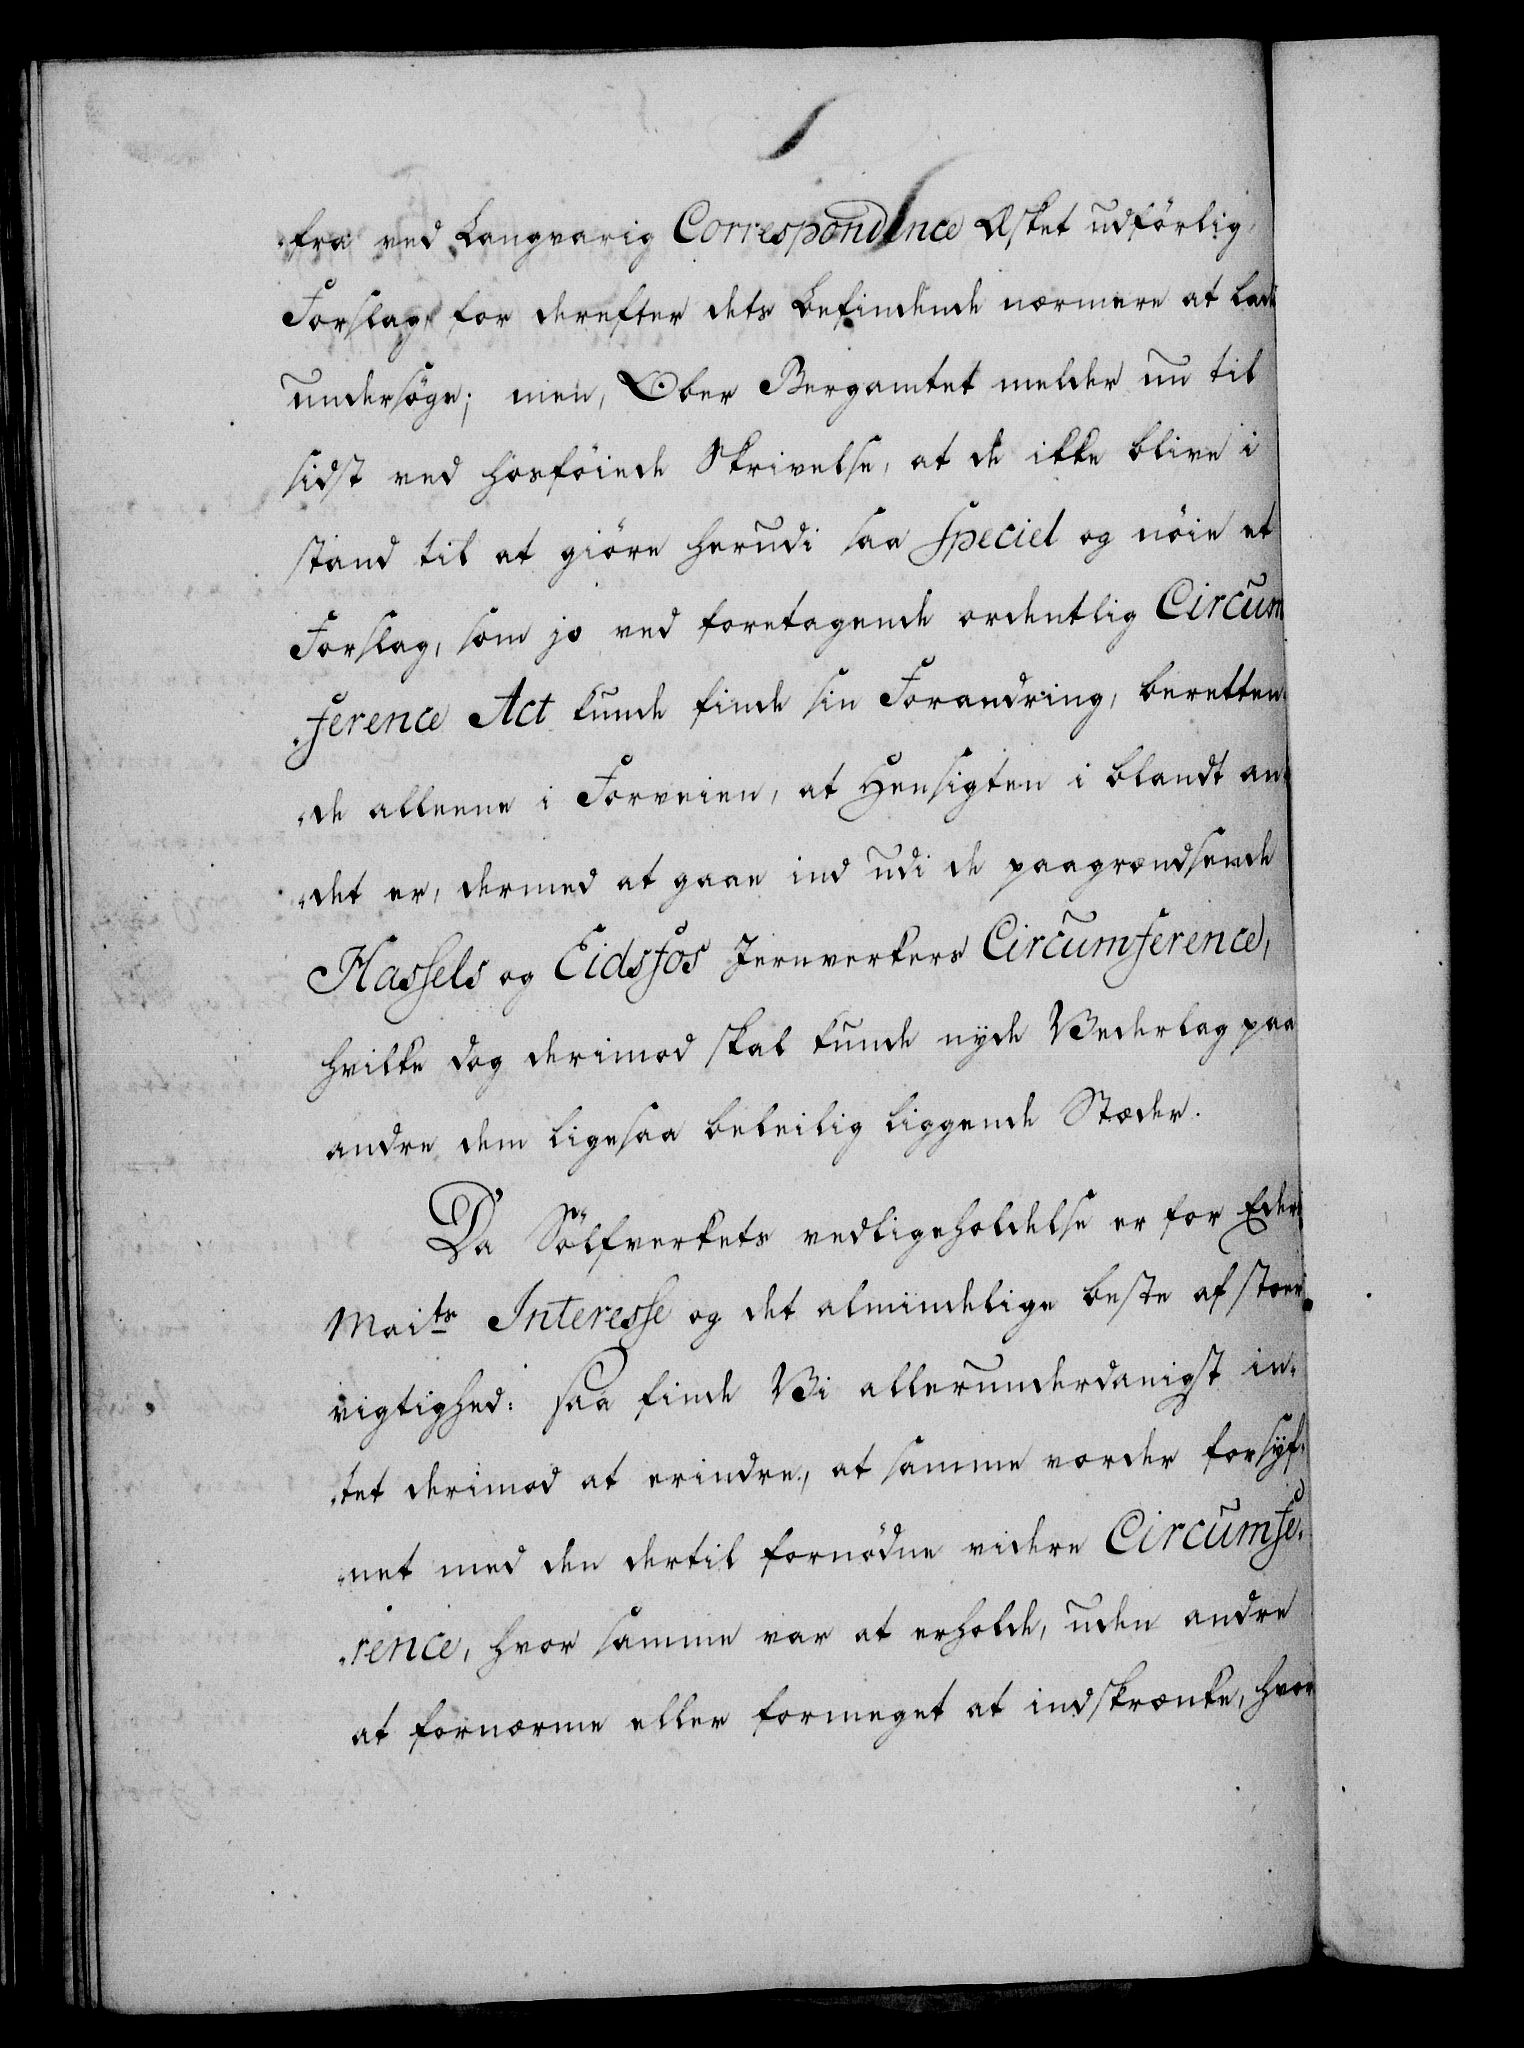 fra ved Langvarig Correspondence Æsket udförlig
Forslag, for derefter dets befindende nærmere at lade
undersöge; men, Ober Bergamtet melder nu til
sidst ved hosföiede Skrivelse, at de ikke blive i
stand til at giöre herudi saa speciel og nöie et
Forslag, som jo ved foretagende ordentlig Circum
ference Act kunde finde sin Forandring, beretten
de alleene i Forveien, at Hensigten i blandt an
det er, dermed at gaae ind udi de paagrændsende
Hassels og Eidsfos Jernverkers Circumference,
hvilke dog derimod skal kunde nyde Vederlag paa
andre dem ligesaa beleilig liggende Stæder.
Da Sölfverkets vedligeholdelse er for Eders
Maits Interesse og det almindelige beste af stoer
vigtighed: saa finde Vi allerunderdanigst in-
tet derimod at erindre, at samme vorder forsÿ-
net med den dertil fornödne videre Circumfe-
rence, hvor samme var at erholde, uden andre
at fornærme eller formeget at indskrænke, hvor